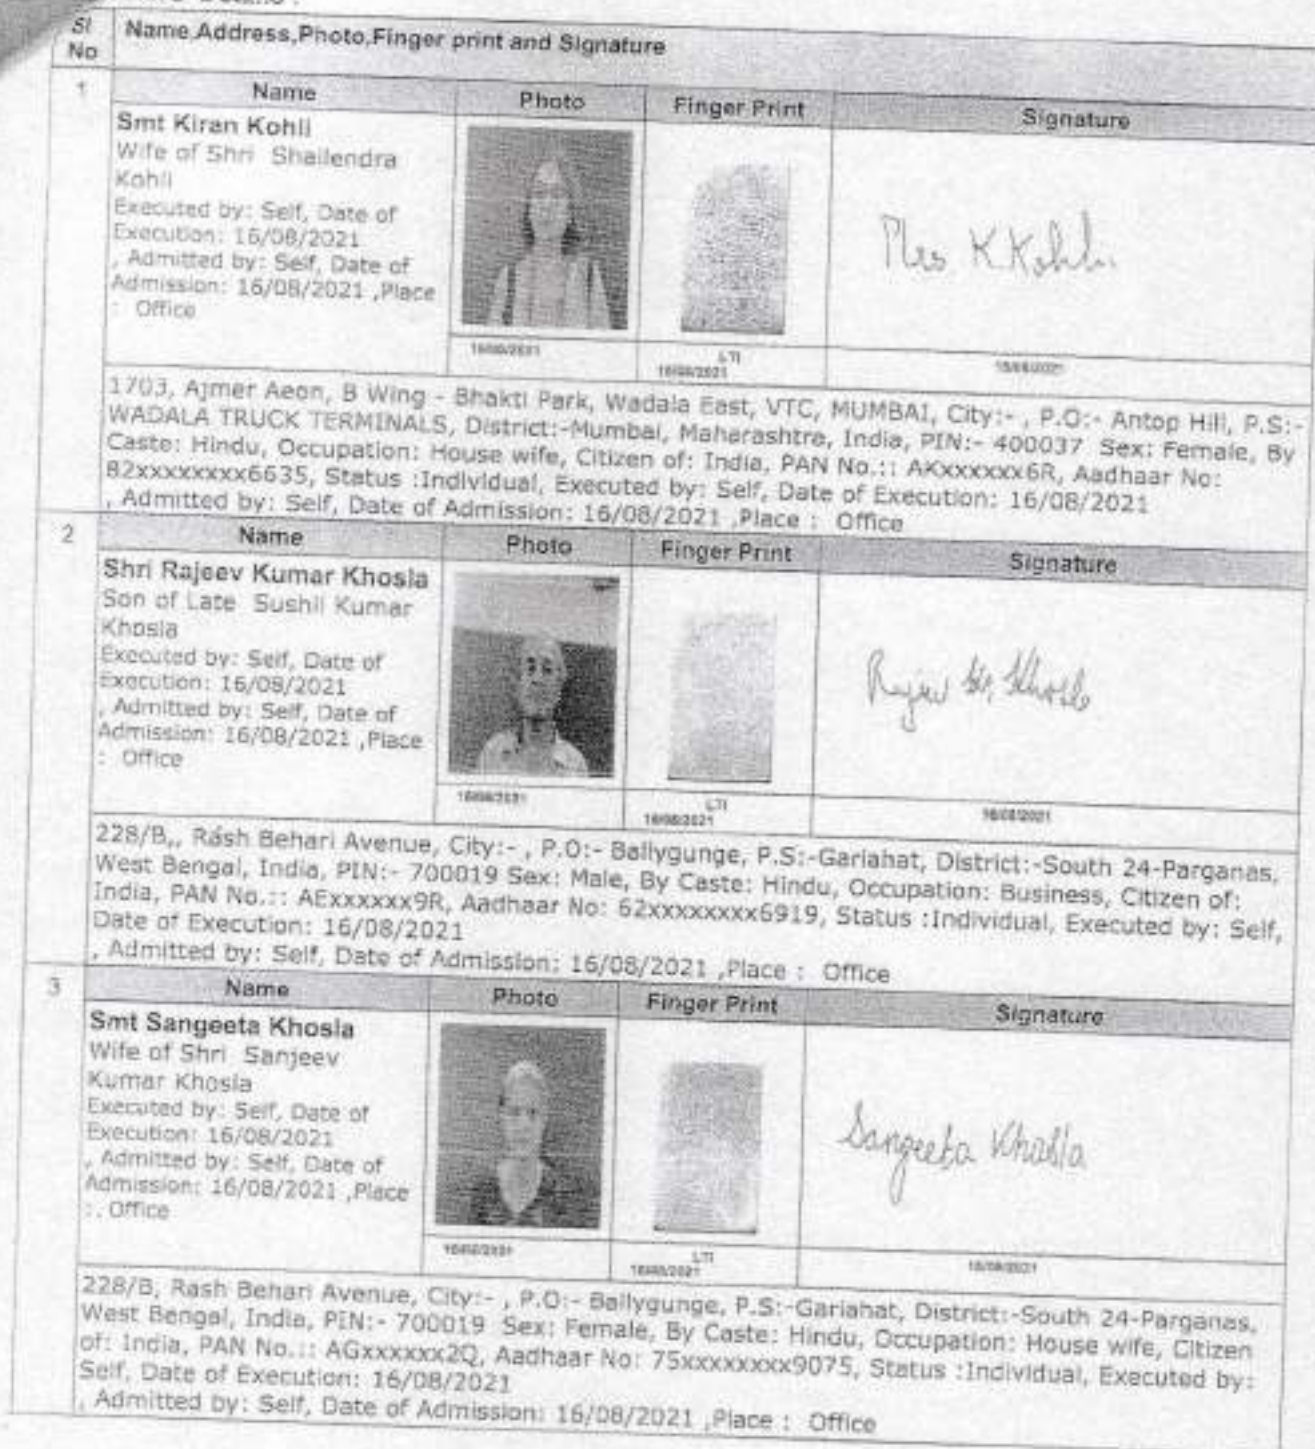 Sl No
Name,Address,Photo,Finger print and Signature
1
Name
Photo
Finger Print
Signature
Smt Kiran Kohli
Wife of Shri Shailendra
Kohli
Executed by: Self, Date of
Execution: 16/08/2021
, Admitted by: Self, Date of
Admission: 16/08/2021 ,Place
: Office
Mrs K Kohli
16/08/2021
LTI
16/08/2021
16/08/2021
1703, Ajmer Aeon, B Wing - Bhakti Park, Wadala East, VTC, MUMBAI, City:- , P.O:- Antop Hill, P.S:-
WADALA TRUCK TERMINALS, District:-Mumbai, Maharashtra, India, PIN:- 400037 Sex: Female, By
Caste: Hindu, Occupation: House wife, Citizen of: India, PAN No.:: AKxxxxxx6R, Aadhaar No:
82xxxxxxxx6635, Status :Individual, Executed by: Self, Date of Execution: 16/08/2021
, Admitted by: Self, Date of Admission: 16/08/2021 ,Place : Office
2
Name
Photo
Finger Print
Signature
Shri Rajeev Kumar Khosla
Son of Late Sushil Kumar
Khosla
Executed by: Self, Date of
Execution: 16/08/2021
, Admitted by: Self, Date of
Admission: 16/08/2021 ,Place
: Office
Rajeev Kr. Khosla
16/08/2021
LTI
16/08/2021
16/08/2021
228/B,, Rash Behari Avenue, City:- , P.O:- Ballygunge, P.S:-Gariahat, District:-South 24-Parganas,
West Bengal, India, PIN:- 700019 Sex: Male, By Caste: Hindu, Occupation: Business, Citizen of:
India, PAN No.:: AExxxxxx9R, Aadhaar No: 62xxxxxxxx6919, Status :Individual, Executed by: Self,
Date of Execution: 16/08/2021
, Admitted by: Self, Date of Admission: 16/08/2021 ,Place : Office
3
Name
Photo
Finger Print
Signature
Smt Sangeeta Khosla
Wife of Shri Sanjeev
Kumar Khosla
Executed by: Self, Date of
Execution: 16/08/2021
, Admitted by: Self, Date of
Admission: 16/08/2021 ,Place
: Office
Sangeeta Khosla
16/08/2021
LTI
16/08/2021
16/08/2021
228/B, Rash Behari Avenue, City:- , P.O:- Ballygunge, P.S:-Gariahat, District:-South 24-Parganas,
West Bengal, India, PIN:- 700019 Sex: Female, By Caste: Hindu, Occupation: House wife, Citizen
of: India, PAN No.:: AGxxxxxx2Q, Aadhaar No: 75xxxxxxxx9075, Status :Individual, Executed by:
Self, Date of Execution: 16/08/2021
, Admitted by: Self, Date of Admission: 16/08/2021 ,Place : Office